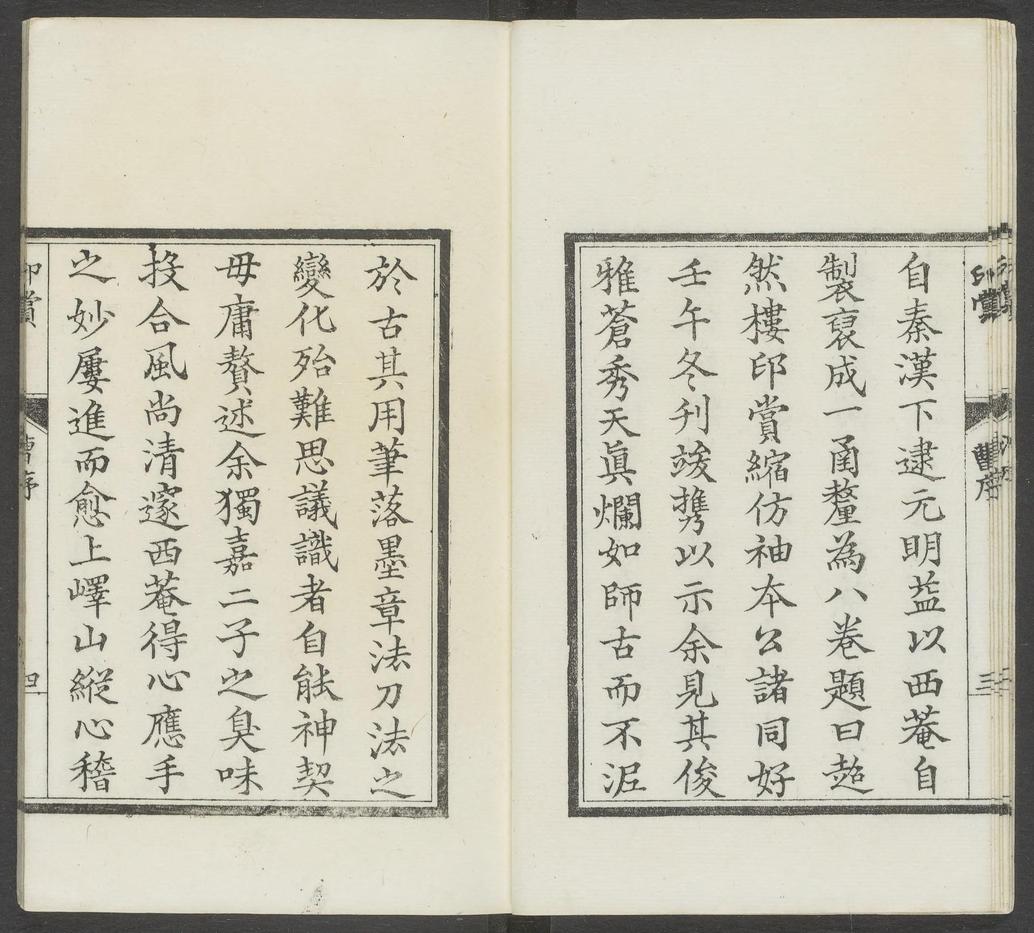 自秦漢下逮元明益以西菴自
製裒成一甬釐為八卷題曰超
然樓印賞縮仿袖本公諸同好
壬午冬刋竣携以示余見其俊
雅蒼秀天眞爛如師古而不泥
印賞
曹序
三
於古其用筆落墨章法刀法之
變化殆難思議識者自能神契
毋庸贅述余獨嘉二子之臭味
投合風尚清邃西菴得心應手
之妙屢進而愈上嶧山縱心稽
印賞
曹序
四